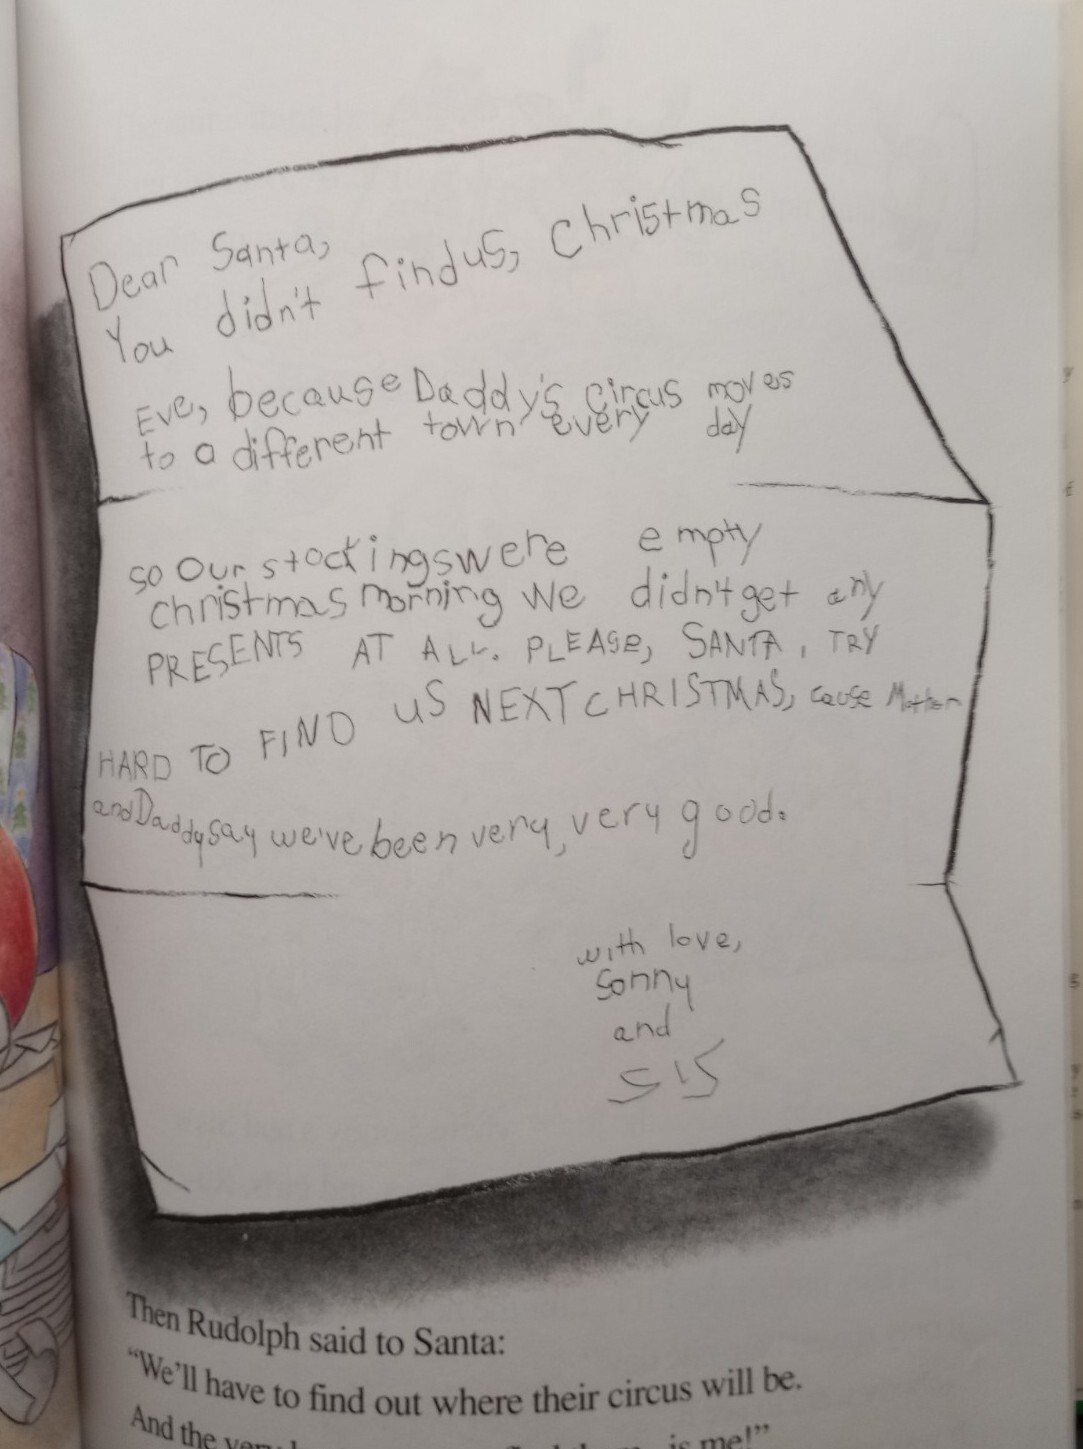 Dear Santa,
You didn't findus, Christmas
Eve, because Daddy's circus moves
to a different town every day
so our stockingswere empty
christmas morning We didn't get any
PRESENTS AT ALL. PLEASE, SANTA, TRY
HARD TO FIND US NEXT CHRISTMAS, cause Mother
and Daddy say we've been very, very good.
with love,
Sonny
and
SIS
Then Rudolph said to Santa:
“We'll have to find out where their circus will be.
And the very is me!”